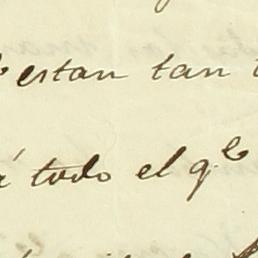 estan tan
á todo el qᵉ